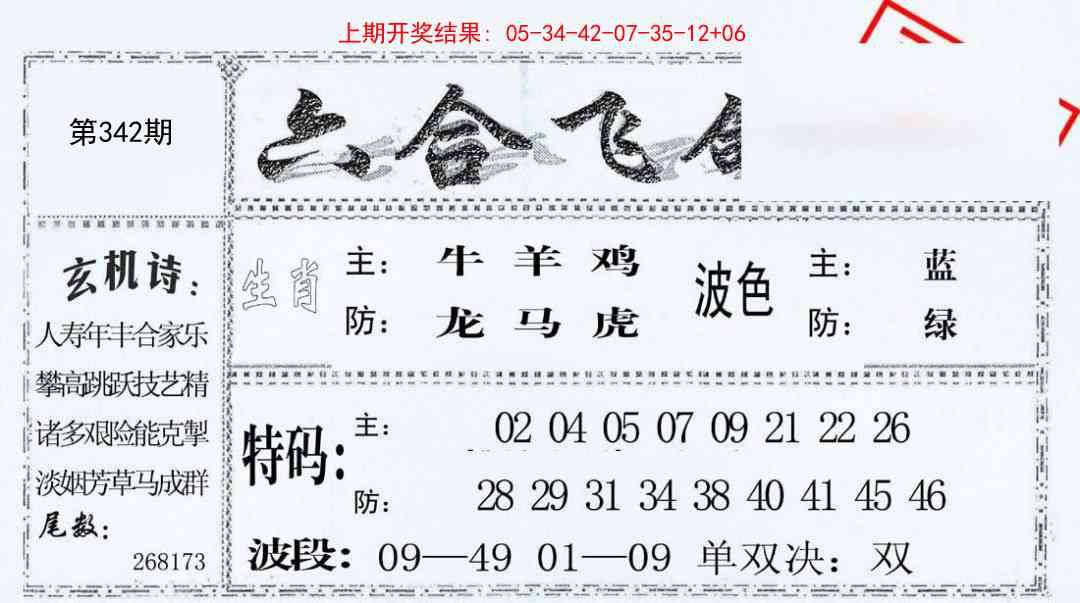 上期开奖结果：05-34-42-07-35-12+06
第342期
六合飞
玄机诗：
人寿年丰合家乐
攀高跳跃技艺精
诸多艰险能克掣
淡姻芳草马成群
尾数：
268173
生肖
主： 牛 羊 鸡
防： 龙 马 虎
波色
主： 蓝
防： 绿
特码：
主： 02 04 05 07 09 21 22 26
防： 28 29 31 34 38 40 41 45 46
波段：09—49 01—09 单双决：双